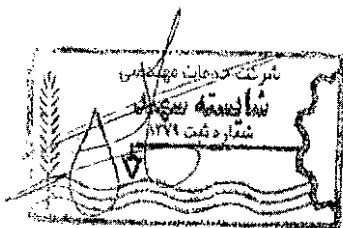 شرکت خدمات مهندسی
شایسته سهند
شماره ثبت ۱۲۷۹